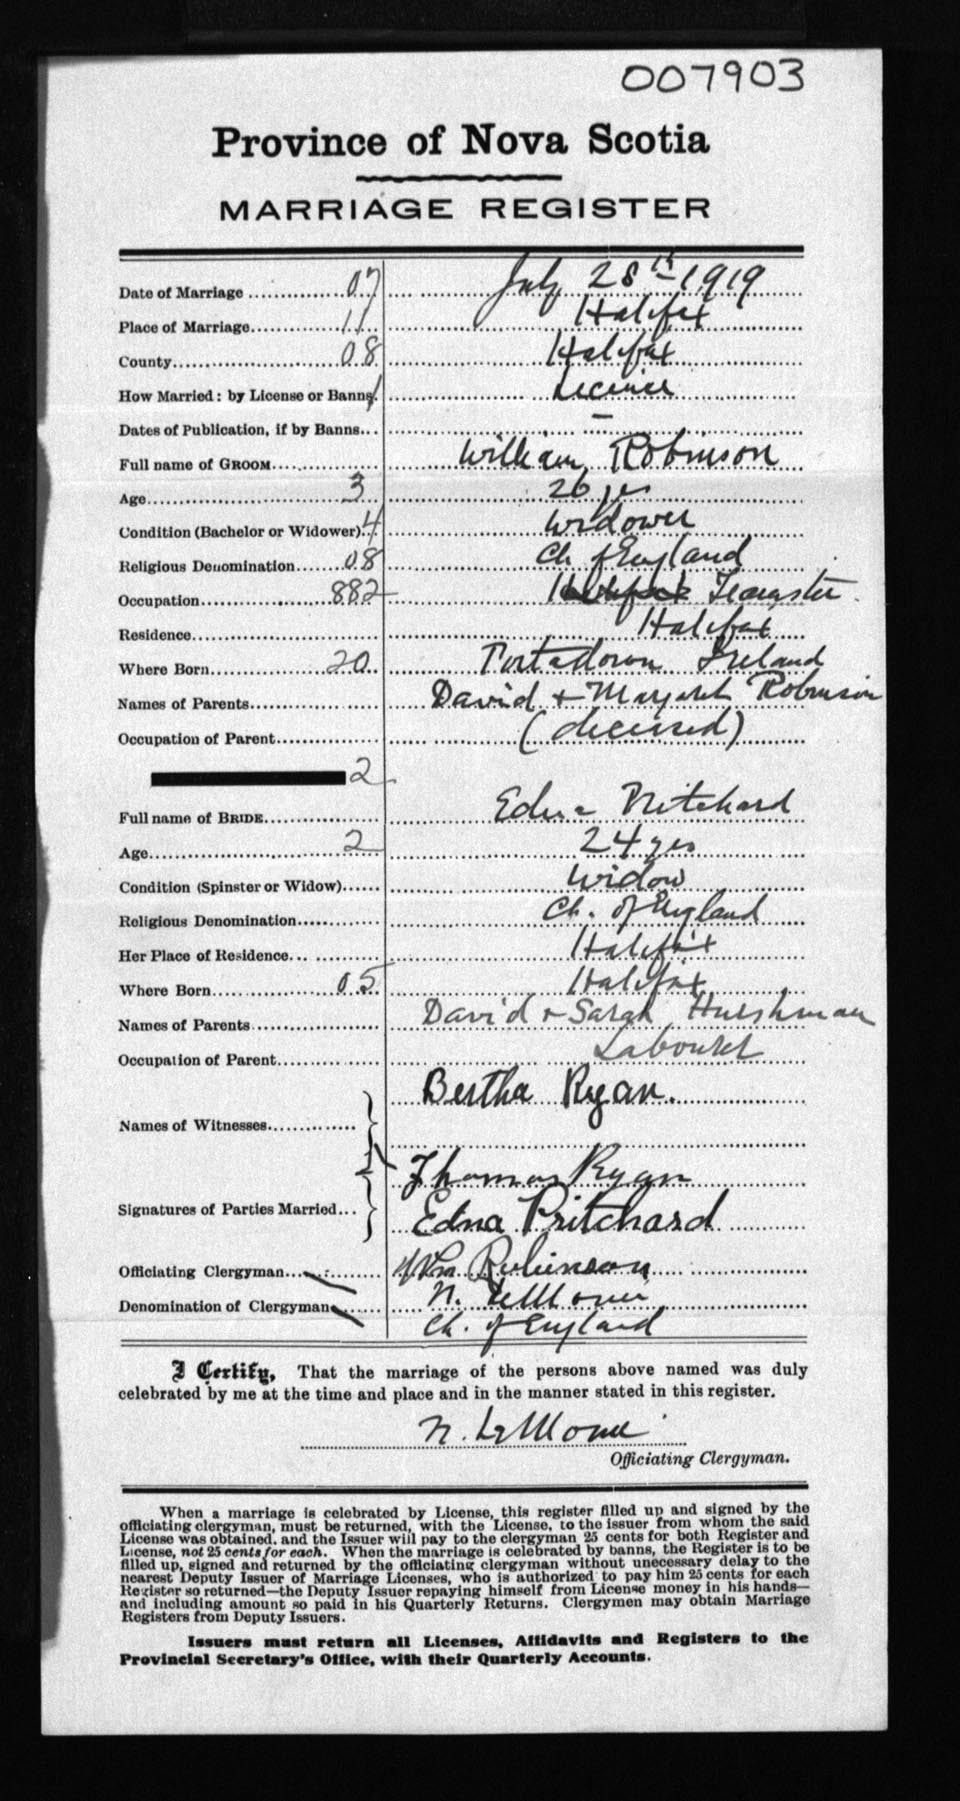 007903
Province of Nova Scotia
MARRIAGE REGISTER
Date of Marriage 07 July 28th 1919
Place of Marriage 11 Halifax
County 08 Halifax
How Married: by License or Banns. 1 Licence
Dates of Publication, if by Banns... —
Full name of GROOM William Robinson
Age 3 26 yrs
Condition (Bachelor or Widower) 4 Widower
Religious Denomination 08 Ch of England
Occupation 882 Teamster
Residence Halifax
Where Born 20 Portadown Ireland
Names of Parents David + Margaret Robinson
Occupation of Parent (deceased)
2
Full name of BRIDE Edna Pritchard
Age 2 24 yrs
Condition (Spinster or Widow) Widow
Religious Denomination Ch. of England
Her Place of Residence Halifax
Where Born 05 Halifax
Names of Parents David + Sarah Hurshman
Occupation of Parent Labourer
Bertha Ryan.
Names of Witnesses
Thomas Ryan
Signatures of Parties Married... Edna Pritchard
Officiating Clergyman Wm Robinson
N. LeMoine
Denomination of Clergyman Ch. of England
I Certify, That the marriage of the persons above named was duly
celebrated by me at the time and place and in the manner stated in this register.
N. LeMoine
Officiating Clergyman.
When a marriage is celebrated by License, this register filled up and signed by the
officiating clergyman, must be returned, with the License, to the issuer from whom the said
License was obtained, and the Issuer will pay to the clergyman 25 cents for both Register and
License, not 25 cents for each. When the marriage is celebrated by banns, the Register is to be
filled up, signed and returned by the officiating clergyman without unecessary delay to the
nearest Deputy Issuer of Marriage Licenses, who is authorized to pay him 25 cents for each
Register so returned—the Deputy Issuer repaying himself from License money in his hands—
and including amount so paid in his Quarterly Returns. Clergymen may obtain Marriage
Registers from Deputy Issuers.
Issuers must return all Licenses, Affidavits and Registers to the
Provincial Secretary's Office, with their Quarterly Accounts.